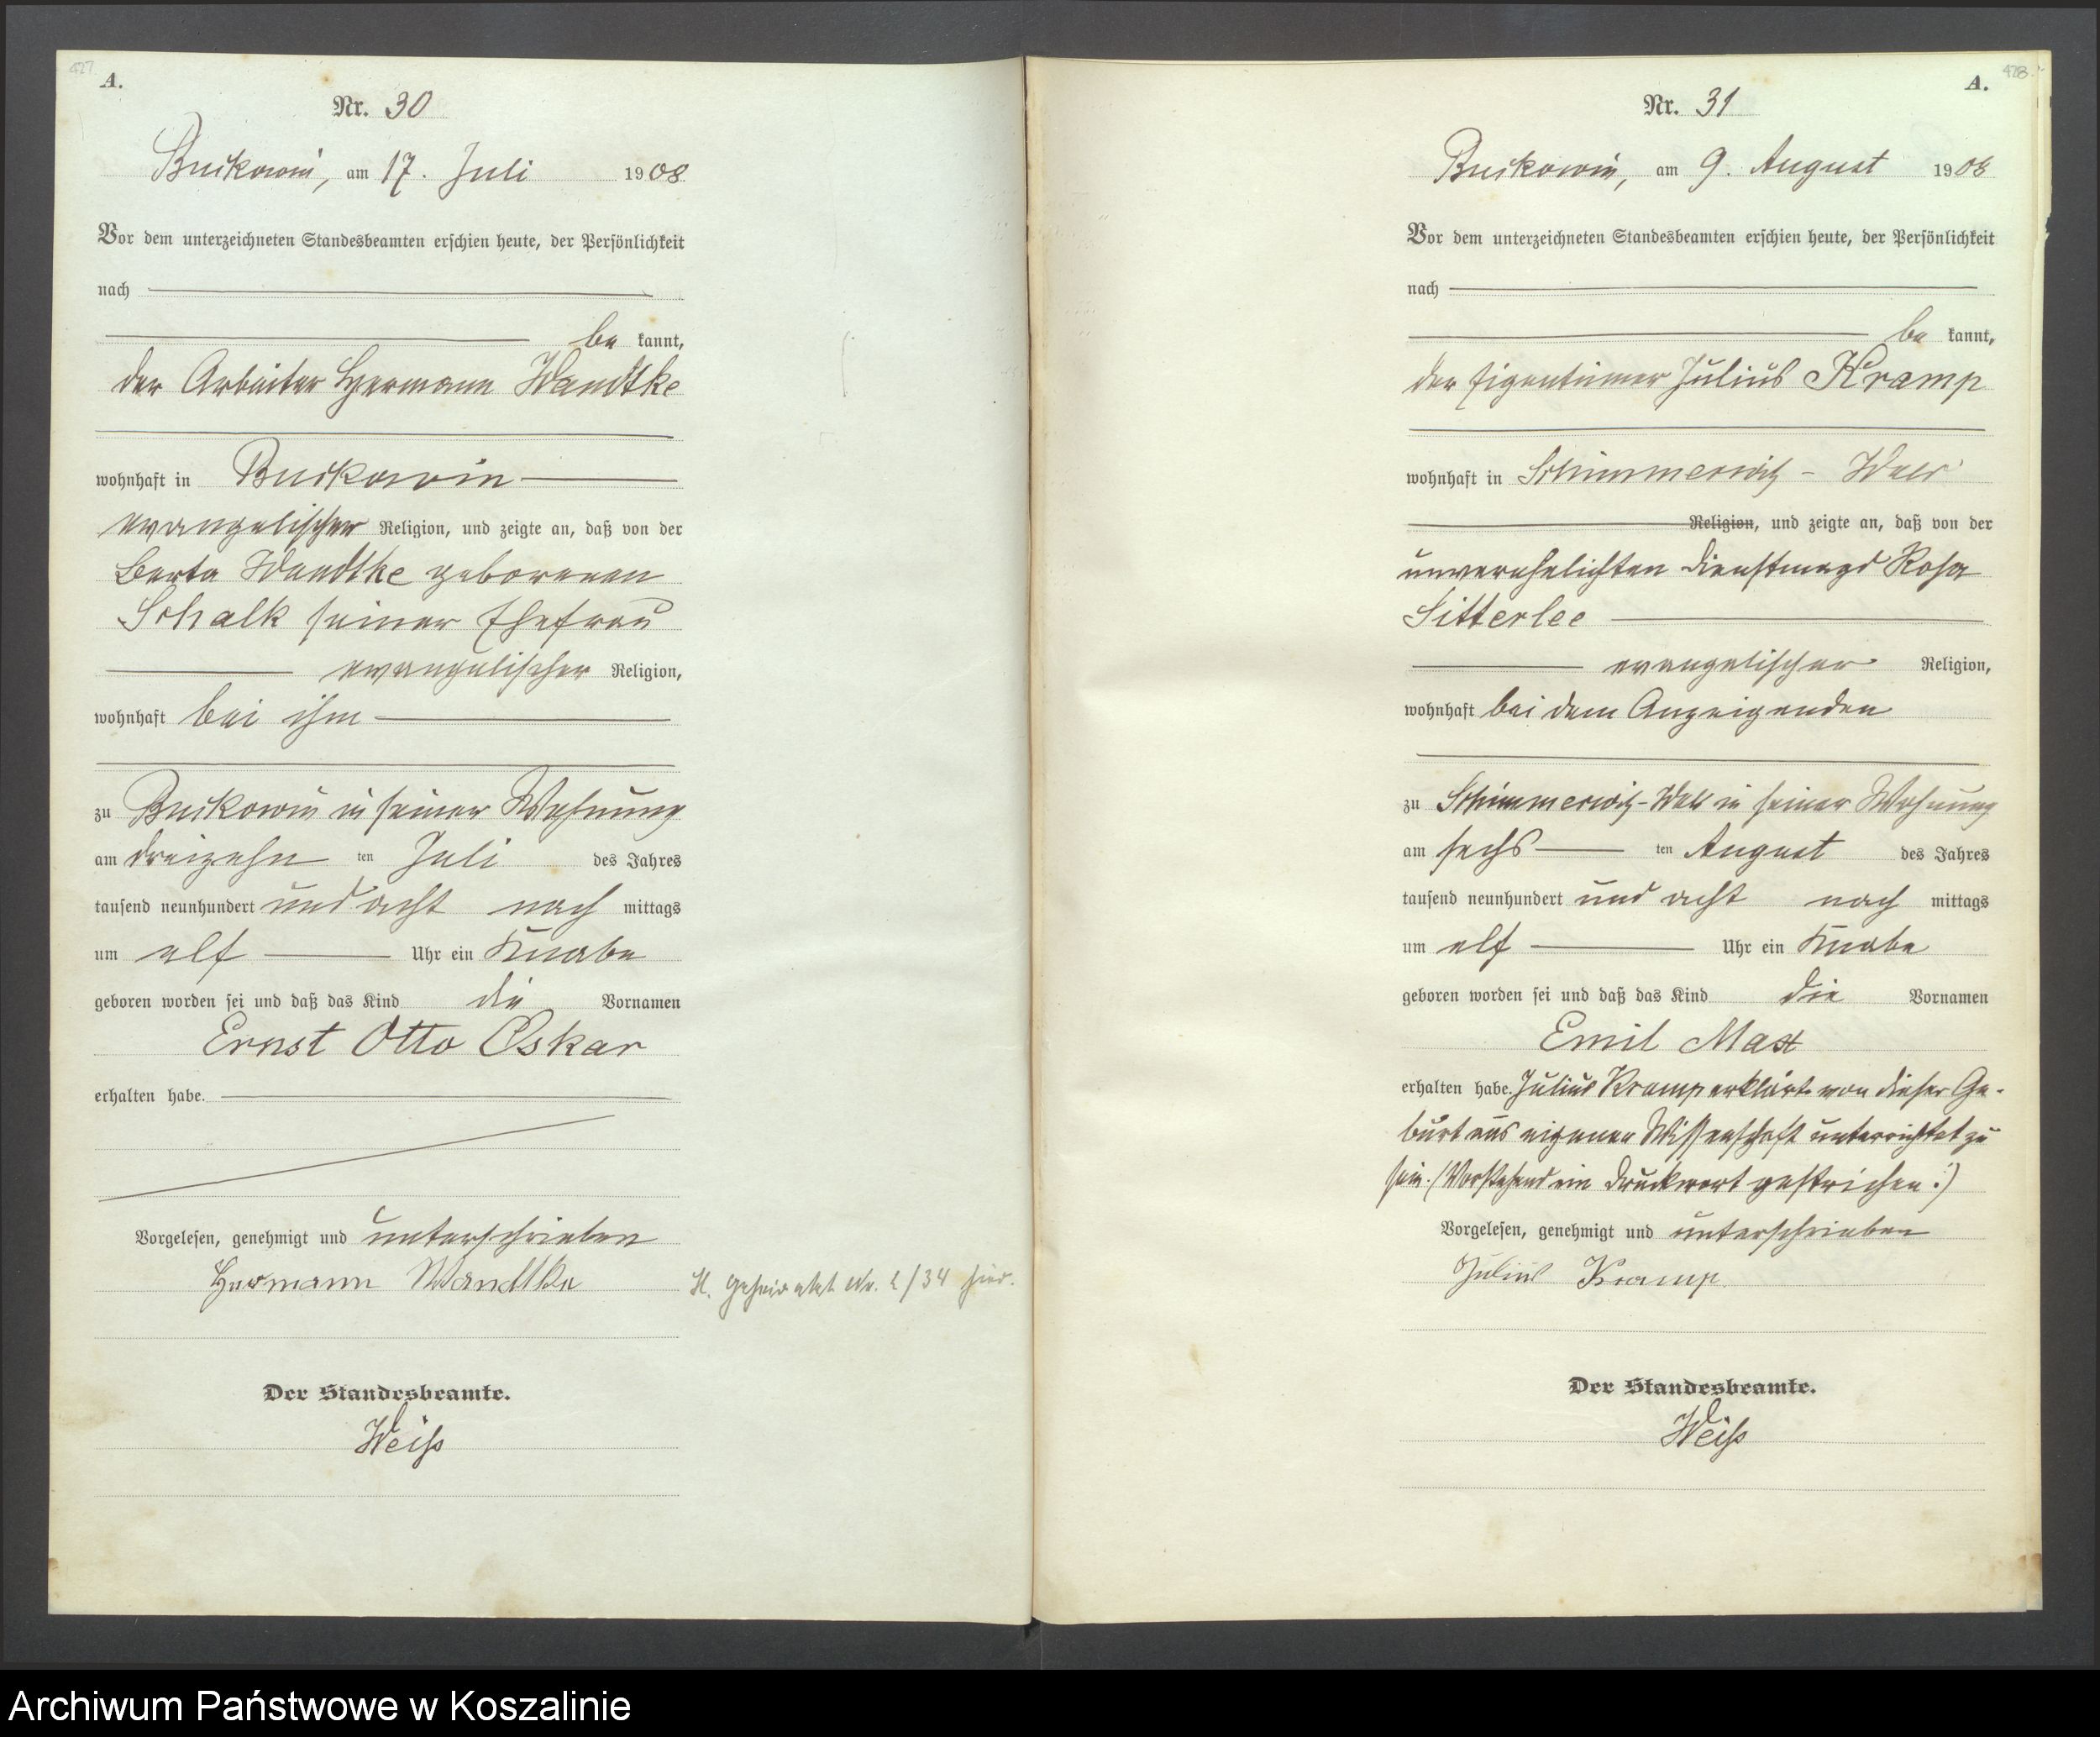 427
A.
Nr. 30
Buckowin, am 17. Juli 1908
Vor dem unterzeichneten Standesbeamten erschien heute, der Persönlichkeit
nach
be kannt,
der Arbeiter Hermann Wandtke
wohnhaft in Buckowin
evangelischer Religion, und zeigte an, daß von der
Berta Wandtke geborenen
Schalk seiner Ehefrau
evangelischer Religion,
wohnhaft bei ihm
zu Buckowin in seiner Wohnung
am dreizehn ten Juli des Jahres
tausend neunhundert und acht nach mittags
um elf Uhr ein Knabe
geboren worden sei und daß das Kind die Vornamen
Ernst Otto Oskar
erhalten habe.
Vorgelesen, genehmigt und unterschrieben
Hermann Wandtke
geheiratet Nr. 2/34 hier.
Der Standesbeamte.
Weiß
428
A.
Nr. 31
Buckowin, am 9. August 1908
Vor dem unterzeichneten Standesbeamten erschien heute, der Persönlichkeit
nach
be kannt,
der Eigentümer Julius Kramp
wohnhaft in Schimmerwitz-Wall
Religion, und zeigte an, daß von der
unverehelichten Dienstmagd Rosa
Sitterlee
evangelischer Religion,
wohnhaft bei dem Anzeigenden
zu Schimmerwitz-Wall in seiner Wohnung
am sechs ten August des Jahres
tausend neunhundert und acht nach mittags
um elf Uhr ein Knabe
geboren worden sei und daß das Kind die Vornamen
Emil Max
erhalten habe. Julius Kramp erklärte von dieser Ge-
burt aus eigener Wissenschaft unterrichtet zu
sein. (Vorstehend ein Druckwort gestrichen.)
Vorgelesen, genehmigt und unterschrieben
Julius Kramp
Der Standesbeamte.
Weiß
Archiwum Państwowe w Koszalinie